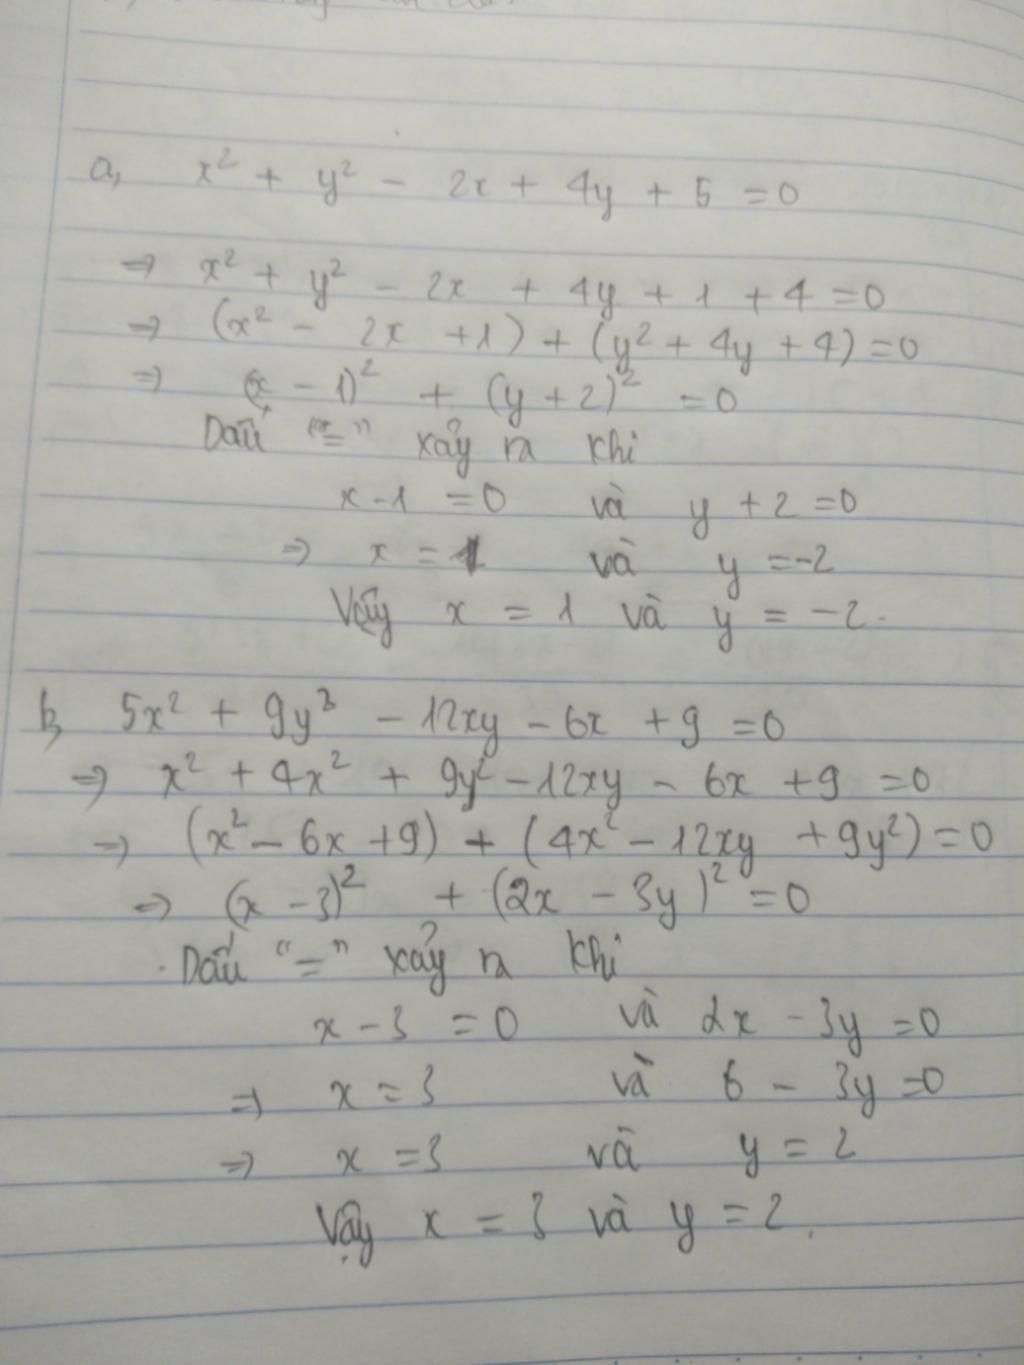 a, x² + y² - 2x + 4y + 5 = 0
⇒ x² + y² - 2x + 4y + 1 + 4 = 0
⇒ (x² - 2x + 1) + (y² + 4y + 4) = 0
⇒ (x - 1)² + (y + 2)² = 0
Dấu "=" xảy ra khi
x - 1 = 0 và y + 2 = 0
⇒ x = 1 và y = -2
Vậy x = 1 và y = -2.
b, 5x² + 9y² - 12xy - 6x + 9 = 0
⇒ x² + 4x² + 9y² - 12xy - 6x + 9 = 0
⇒ (x² - 6x + 9) + (4x² - 12xy + 9y²) = 0
⇒ (x - 3)² + (2x - 3y)² = 0
Dấu "=" xảy ra khi
x - 3 = 0 và 2x - 3y = 0
⇒ x = 3 và 6 - 3y = 0
⇒ x = 3 và y = 2
Vậy x = 3 và y = 2.